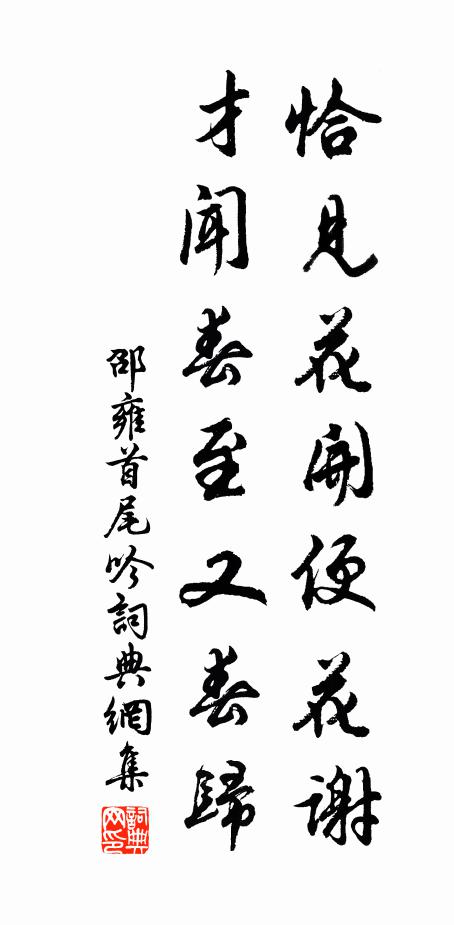 恰見花開便花謝
才聞春至又春歸
邵雍首尾吟詞典網集
詞典
网印